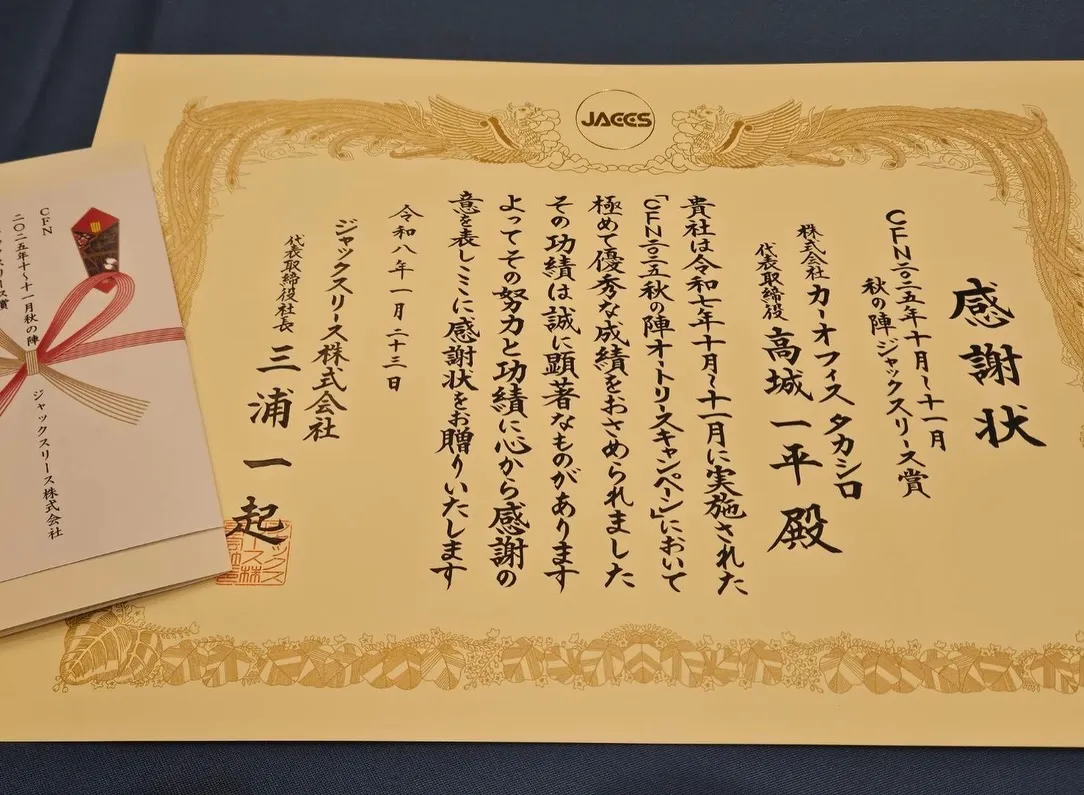 JACCS
感謝状
CFN二〇二五年十月〜十一月
秋の陣 ジャックスリース賞
株式会社 カーオフィス タカシロ
代表取締役 高城 一平 殿
貴社は令和七年十月〜十一月に実施された
「CFN二〇二五秋の陣オートリースキャンペーン」において
極めて優秀な成績をおさめられました
その功績は誠に顕著なものがあります
よってその努力と功績に心から感謝の
意を表しミミに感謝状をお贈りいたします
令和八年一月二十三日
ジャックスリース株式会社
代表取締役社長 三浦 一起
CFN
二〇二五年十〜十一月秋の陣
ジャックスリース賞
ジャックスリース株式会社